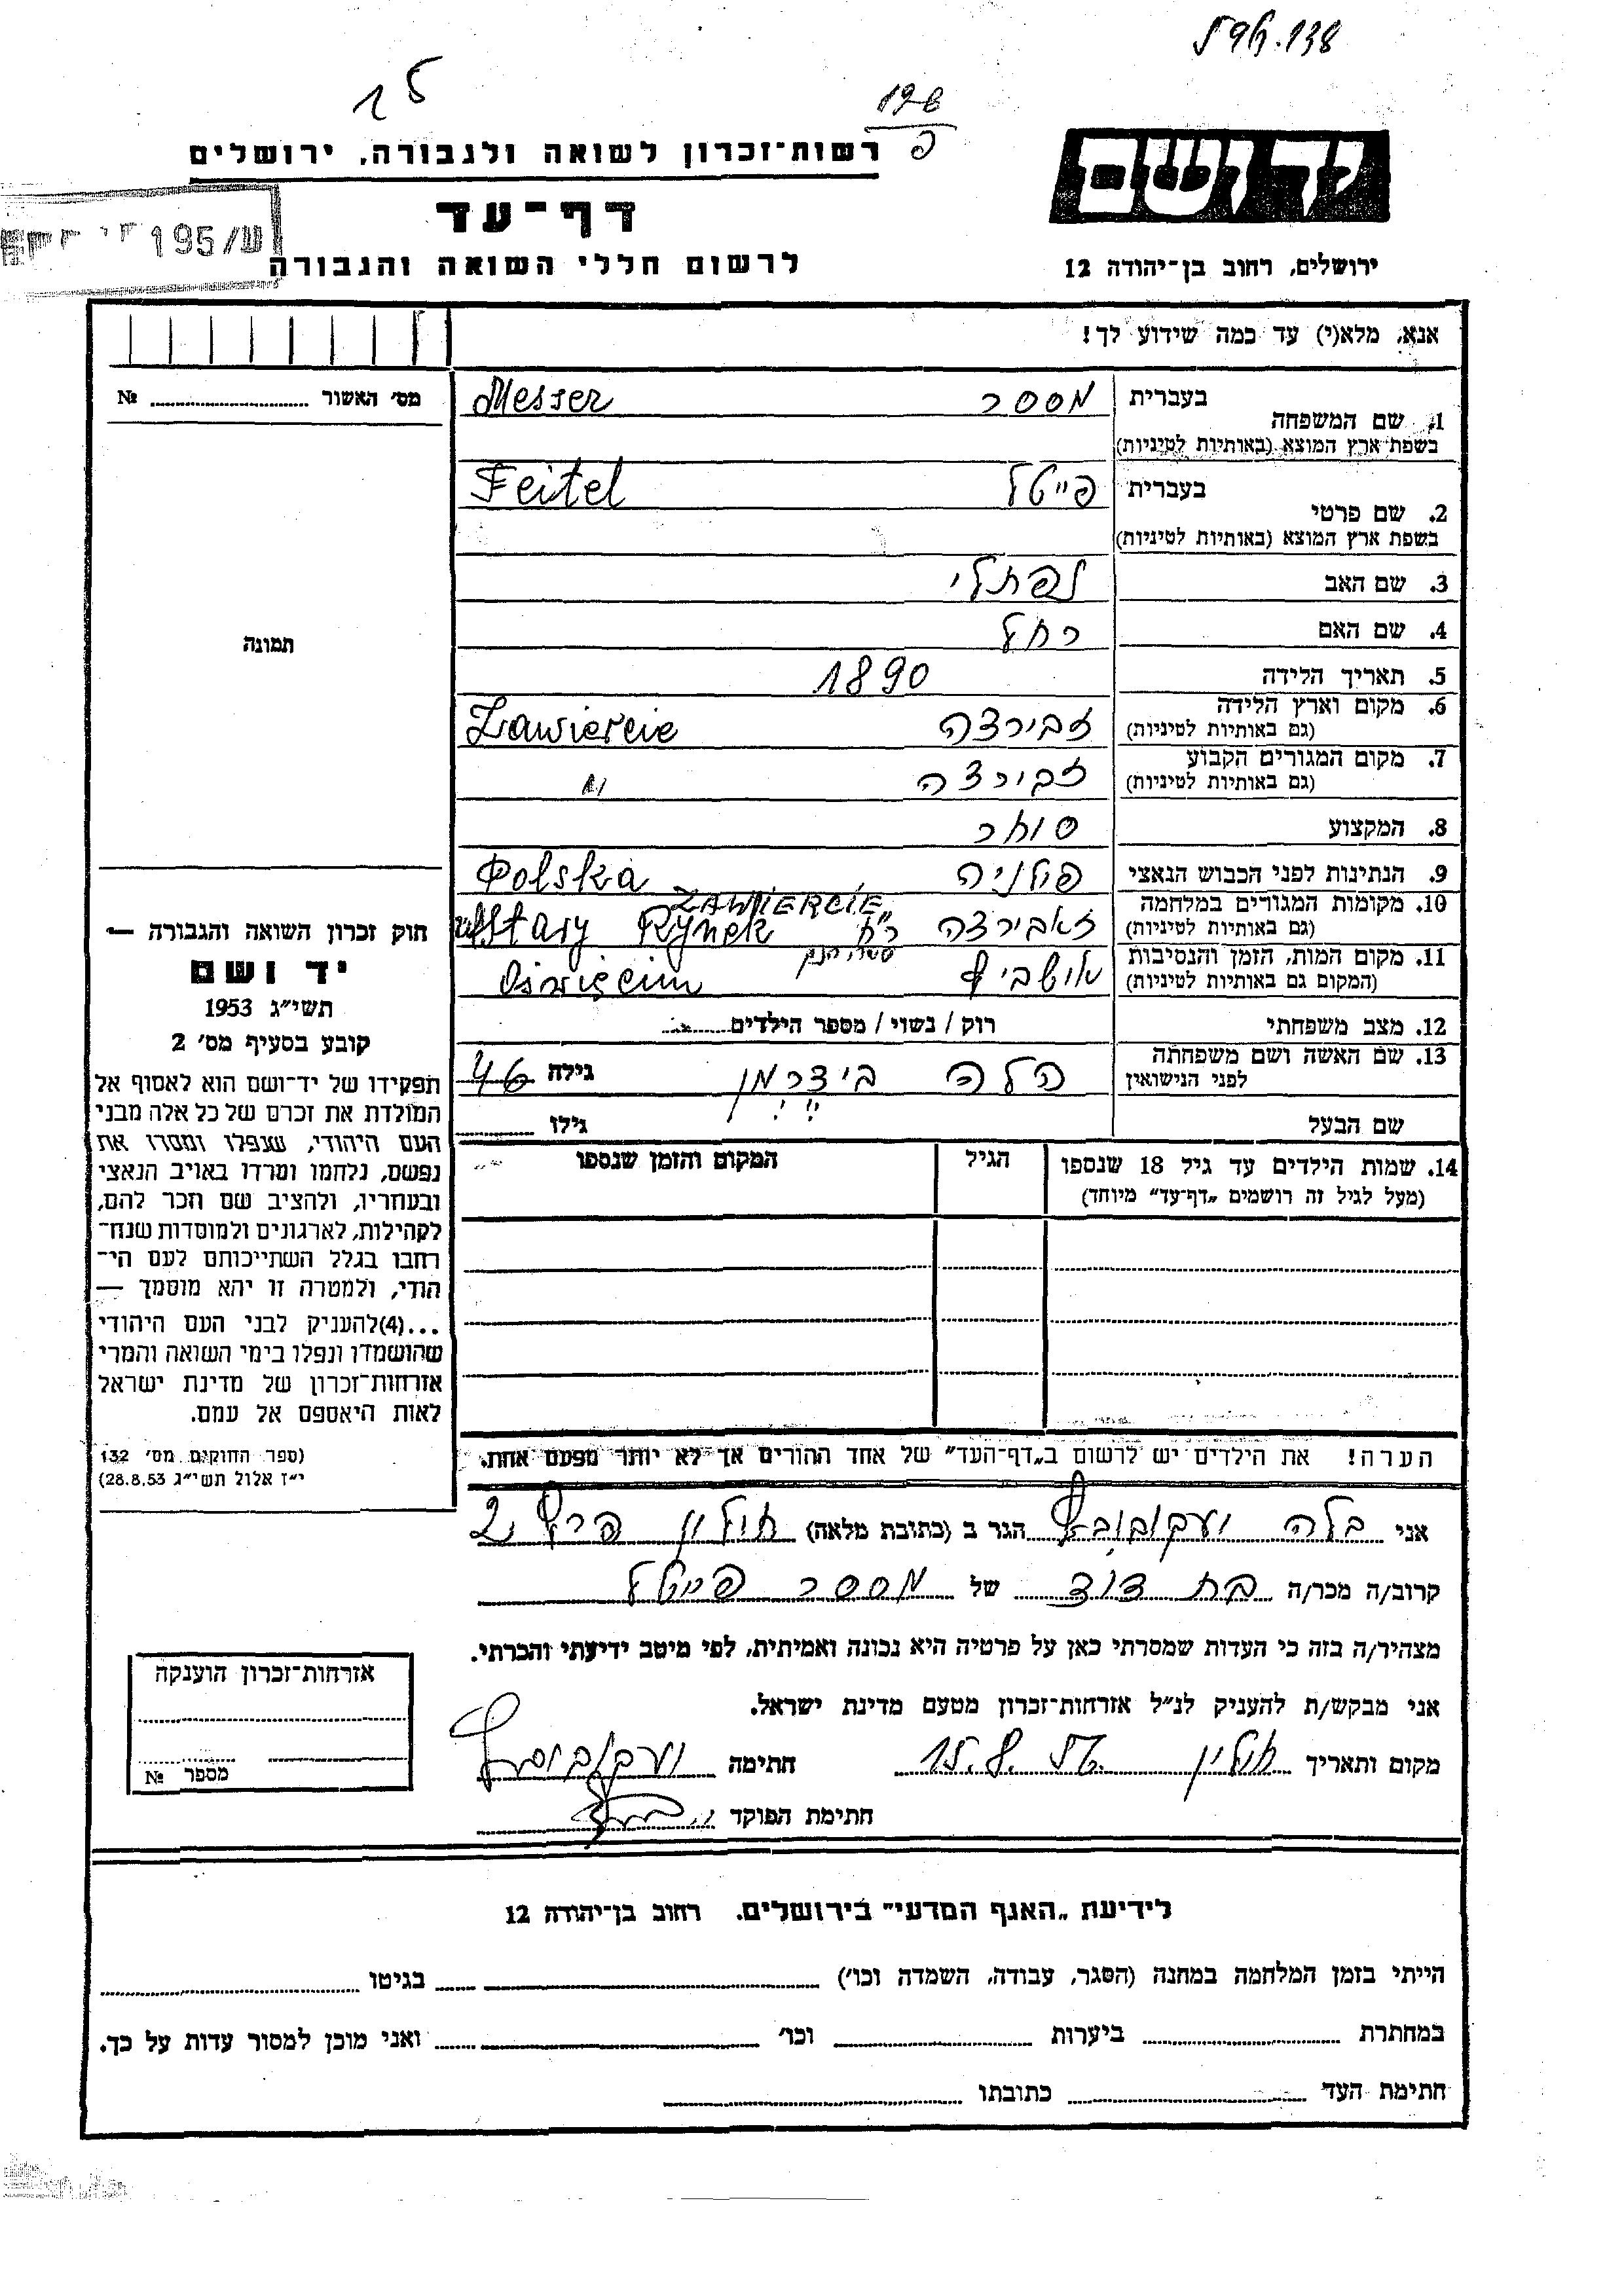 596.138
15
198
פ
רשות־זכרון לשואה ולגבורה, ירושלים
יד ושם
דף־עד
לרשום חללי השואה והגבורה
ירושלים, רחוב בן־יהודה 12
אנא, מלא(י) עד כמה שידוע לך!
מס' האשור № ........
1. שם המשפחה
בעברית מסססר Messer
בשפת ארץ המוצא (באותיות לטיניות)
2. שם פרטי
בעברית פייטל Feitel
בשפת ארץ המוצא (באותיות לטיניות)
3. שם האב נפתלי
4. שם האם רחל
תמונה
5. תאריך הלידה 1890
6. מקום וארץ הלידה זבירצה Zawiercie
(גם באותיות לטיניות)
7. מקום המגורים הקבוע זבירצה "
(גם באותיות לטיניות)
8. המקצוע סוחר
9. הנתינות לפני הכבוש הנאצי פולניה Polska
10. מקומות המגורים במלחמה זאבירצה ZAWIERCIE
(גם באותיות לטיניות) רח' Stary Rynek
11. מקום המות, הזמן והנסיבות אושביץ Oświęcim
(המקום גם באותיות לטיניות)
12. מצב משפחתי רוק / נשוי / מספר הילדים ........
13. שם האשה ושם משפחתה הלה בידרמן גילה 46
לפני הנישואין
שם הבעל גילו ........
14. שמות הילדים עד גיל 18 שנספו הגיל המקום והזמן שנספו
(מעל לגיל זה רושמים „דף־עד" מיוחד)
הערה! את הילדים יש לרשום ב„דף־העד" של אחד ההורים אך לא יותר מפעם אחת.
חוק זכרון השואה והגבורה —
יד ושם
תשי"ג 1953
קובע בסעיף מס' 2
תפקידו של יד־ושם הוא לאסוף אל
המולדת את זכרם של כל אלה מבני
העם היהודי, שנפלו ומסרו את
נפשם, נלחמו ומרדו באויב הנאצי
ובעוזריו, ולהציב שם וזכר להם,
לקהילות, לארגונים ולמוסדות שנח־
רבו בגלל השתייכותם לעם הי־
הודי, ולמטרה זו יהא מוסמך —
...(4)להעניק לבני העם היהודי
שהושמדו ונפלו בימי השואה והמרי
אזרחות־זכרון של מדינת ישראל
לאות היאספם אל עמם.
(ספר החוקים מס' 132
י"ז אלול תשי"ג 28.8.53)
אני בלה יעקובוביץ הגר ב (כתובת מלאה) חולון פרץ 2
קרוב/ה מכר/ה בת דוד של מססר פייטל
מצהיר/ה בזה כי העדות שמסרתי כאן על פרטיה היא נכונה ואמיתית, לפי מיטב ידיעתי והכרתי.
אני מבקש/ת להעניק לנ"ל אזרחות־זכרון מטעם מדינת ישראל.
מקום ותאריך חולון 15.8. חתימה יעקובוביץ
חתימת הפוקד
אזרחות־זכרון הוענקה
מספר №
לידיעת „האגף המדעי" בירושלים. רחוב בן־יהודה 12
הייתי בזמן המלחמה במחנה (הסגר, עבודה, השמדה וכו') ........ בגיטו ........
במחתרת ........ ביערות ........ וכו' ........ ואני מוכן למסור עדות על כך.
חתימת העד ........ כתובתו ........